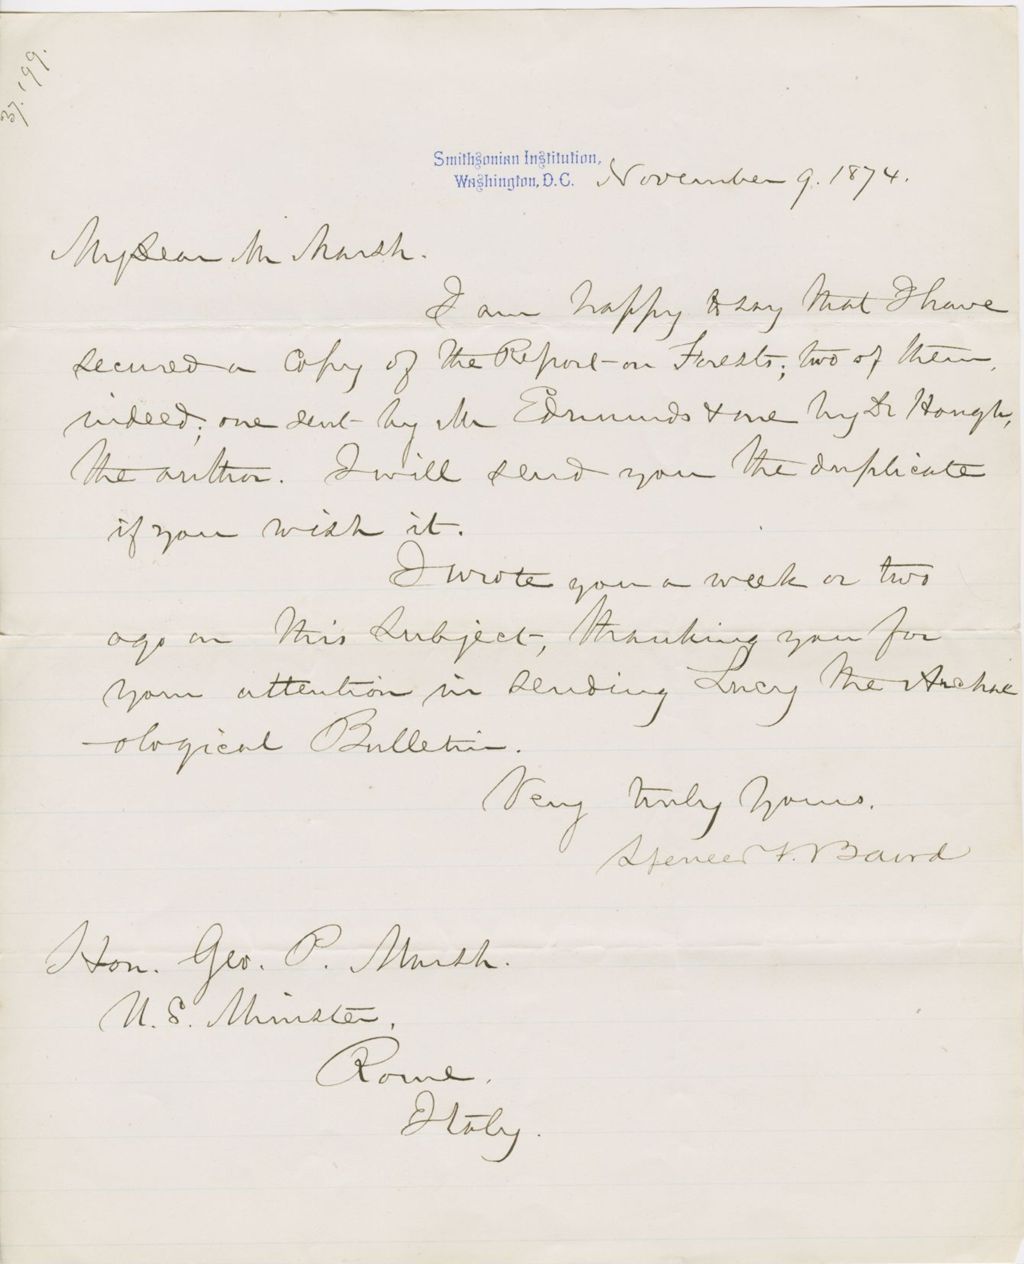 37.'99.
Smithsonian Institution,
Washington, D.C. November 9. 1874.
My Dear Mr Marsh.
I am happy to say that I have
secured a copy of the Report on Forests; two of them,
indeed; one sent by Mr Edmunds & one by Dr Hough,
the author. I will send you the duplicate
if you wish it.
I wrote you a week or two
ago on this subject, thanking you for
your attention in sending Lucy the Archae
-ological Bulletin.
Very truly yours.
Spencer F. Baird
Hon. Geo. P. Marsh.
U.S. Minister.
Rome.
Italy.